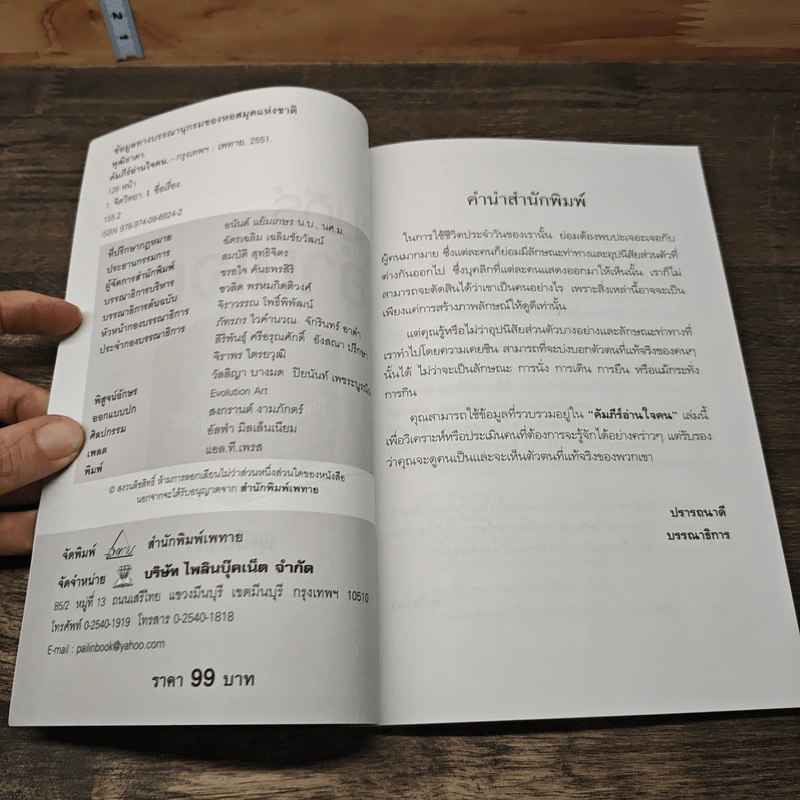 ข้อมูลทางบรรณานุกรมของหอสมุดแห่งชาติ
พุฒิอาดา.
คัมภีร์อ่านใจคน.--กรุงเทพฯ : เพทาย, 2551.
128 หน้า
1. จิตวิทยา. I. ชื่อเรื่อง.
155.2
ISBN 978-974-09-6924-2
ที่ปรึกษากฎหมาย อนันต์ แย้มเกษร น.บ., นศ.ม.
ประธานกรรมการ ฉัตรเฉลิม เฉลิมชัยวัฒน์
ผู้จัดการสำนักพิมพ์ สมบัติ สุทธิจิตร
บรรณาธิการบริหาร ชรอใจ คันธพรสิริ
บรรณาธิการต้นฉบับ ชวลิต พรหมกิตติวงศ์
หัวหน้ากองบรรณาธิการ จิราวรรณ โพธิ์พิพัฒน์
ประจำกองบรรณาธิการ ภัทรภร ไวคำนวณ จักรินทร์ อาดำ
สิริพันธุ์ ศรีอรุณศักดิ์ อังสณา ปรึกษา
จิราพร ไตรยวุฒิ
พิสูจน์อักษร วัลลิญา บางมด ปิยนันท์
ออกแบบปก Evolution Art
ศิลปกรรม สงกรานต์ งามภักตร์
เพลต อัลฟ่า มิลเล็นเนียม
พิมพ์ แอล.ที.เพรส
© สงวนลิขสิทธิ์ ห้ามการลอกเลียนไม่ว่าส่วนหนึ่งส่วนใดของหนังสือ
นอกจากจะได้รับอนุญาตจาก สำนักพิมพ์เพทาย
จัดพิมพ์ เพทาย สำนักพิมพ์เพทาย
จัดจำหน่าย บริษัท ไพลินบุ๊คเน็ต จำกัด
85/2 หมู่ที่ 13 ถนนเสรีไทย แขวงมีนบุรี เขตมีนบุรี กรุงเทพฯ 10510
โทรศัพท์ 0-2540-1919 โทรสาร 0-2540-1818
E-mail : pailinbook@yahoo.com
ราคา 99 บาท
คำนำสำนักพิมพ์
ในการใช้ชีวิตประจำวันของเรานั้น ย่อมต้องพบปะเจอะเจอกับ
ผู้คนมากมาย ซึ่งแต่ละคนก็ย่อมมีลักษณะท่าทางและอุปนิสัยส่วนตัวที่
ต่างกันออกไป ซึ่งบุคลิกที่แต่ละคนแสดงออกมาให้เห็นนั้น เราก็ไม่
สามารถจะตัดสินได้ว่าเขาเป็นคนอย่างไร เพราะสิ่งเหล่านี้อาจจะเป็น
เพียงแค่การสร้างภาพลักษณ์ให้ดูดีเท่านั้น
แต่คุณรู้หรือไม่ว่าอุปนิสัยส่วนตัวบางอย่างและลักษณะท่าทางที่
เราทำไปโดยความเคยชิน สามารถที่จะบ่งบอกตัวตนที่แท้จริงของคนๆ
นั้นได้ ไม่ว่าจะเป็นลักษณะ การนั่ง การเดิน การยืน หรือแม้กระทั่ง
การกิน
คุณสามารถใช้ข้อมูลที่รวบรวมอยู่ใน “คัมภีร์อ่านใจคน” เล่มนี้
เพื่อวิเคราะห์หรือประเมินคนที่ต้องการจะรู้จักได้อย่างคร่าวๆ แต่รับรอง
ว่าคุณจะดูคนเป็นและจะเห็นตัวตนที่แท้จริงของพวกเขา
ปรารถนาดี
บรรณาธิการ
2 1